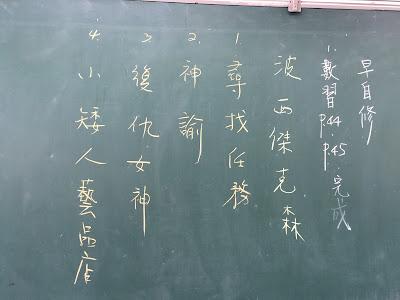 早自修
1. 數習 p.44. p.45. 完成
波西傑克森
1. 尋找任務
2. 神諭
3. 復仇女神
4. 小矮人藝品店